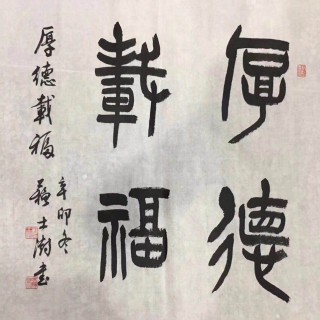 厚德
載福
厚德載福
辛卯冬
蘇士澍書